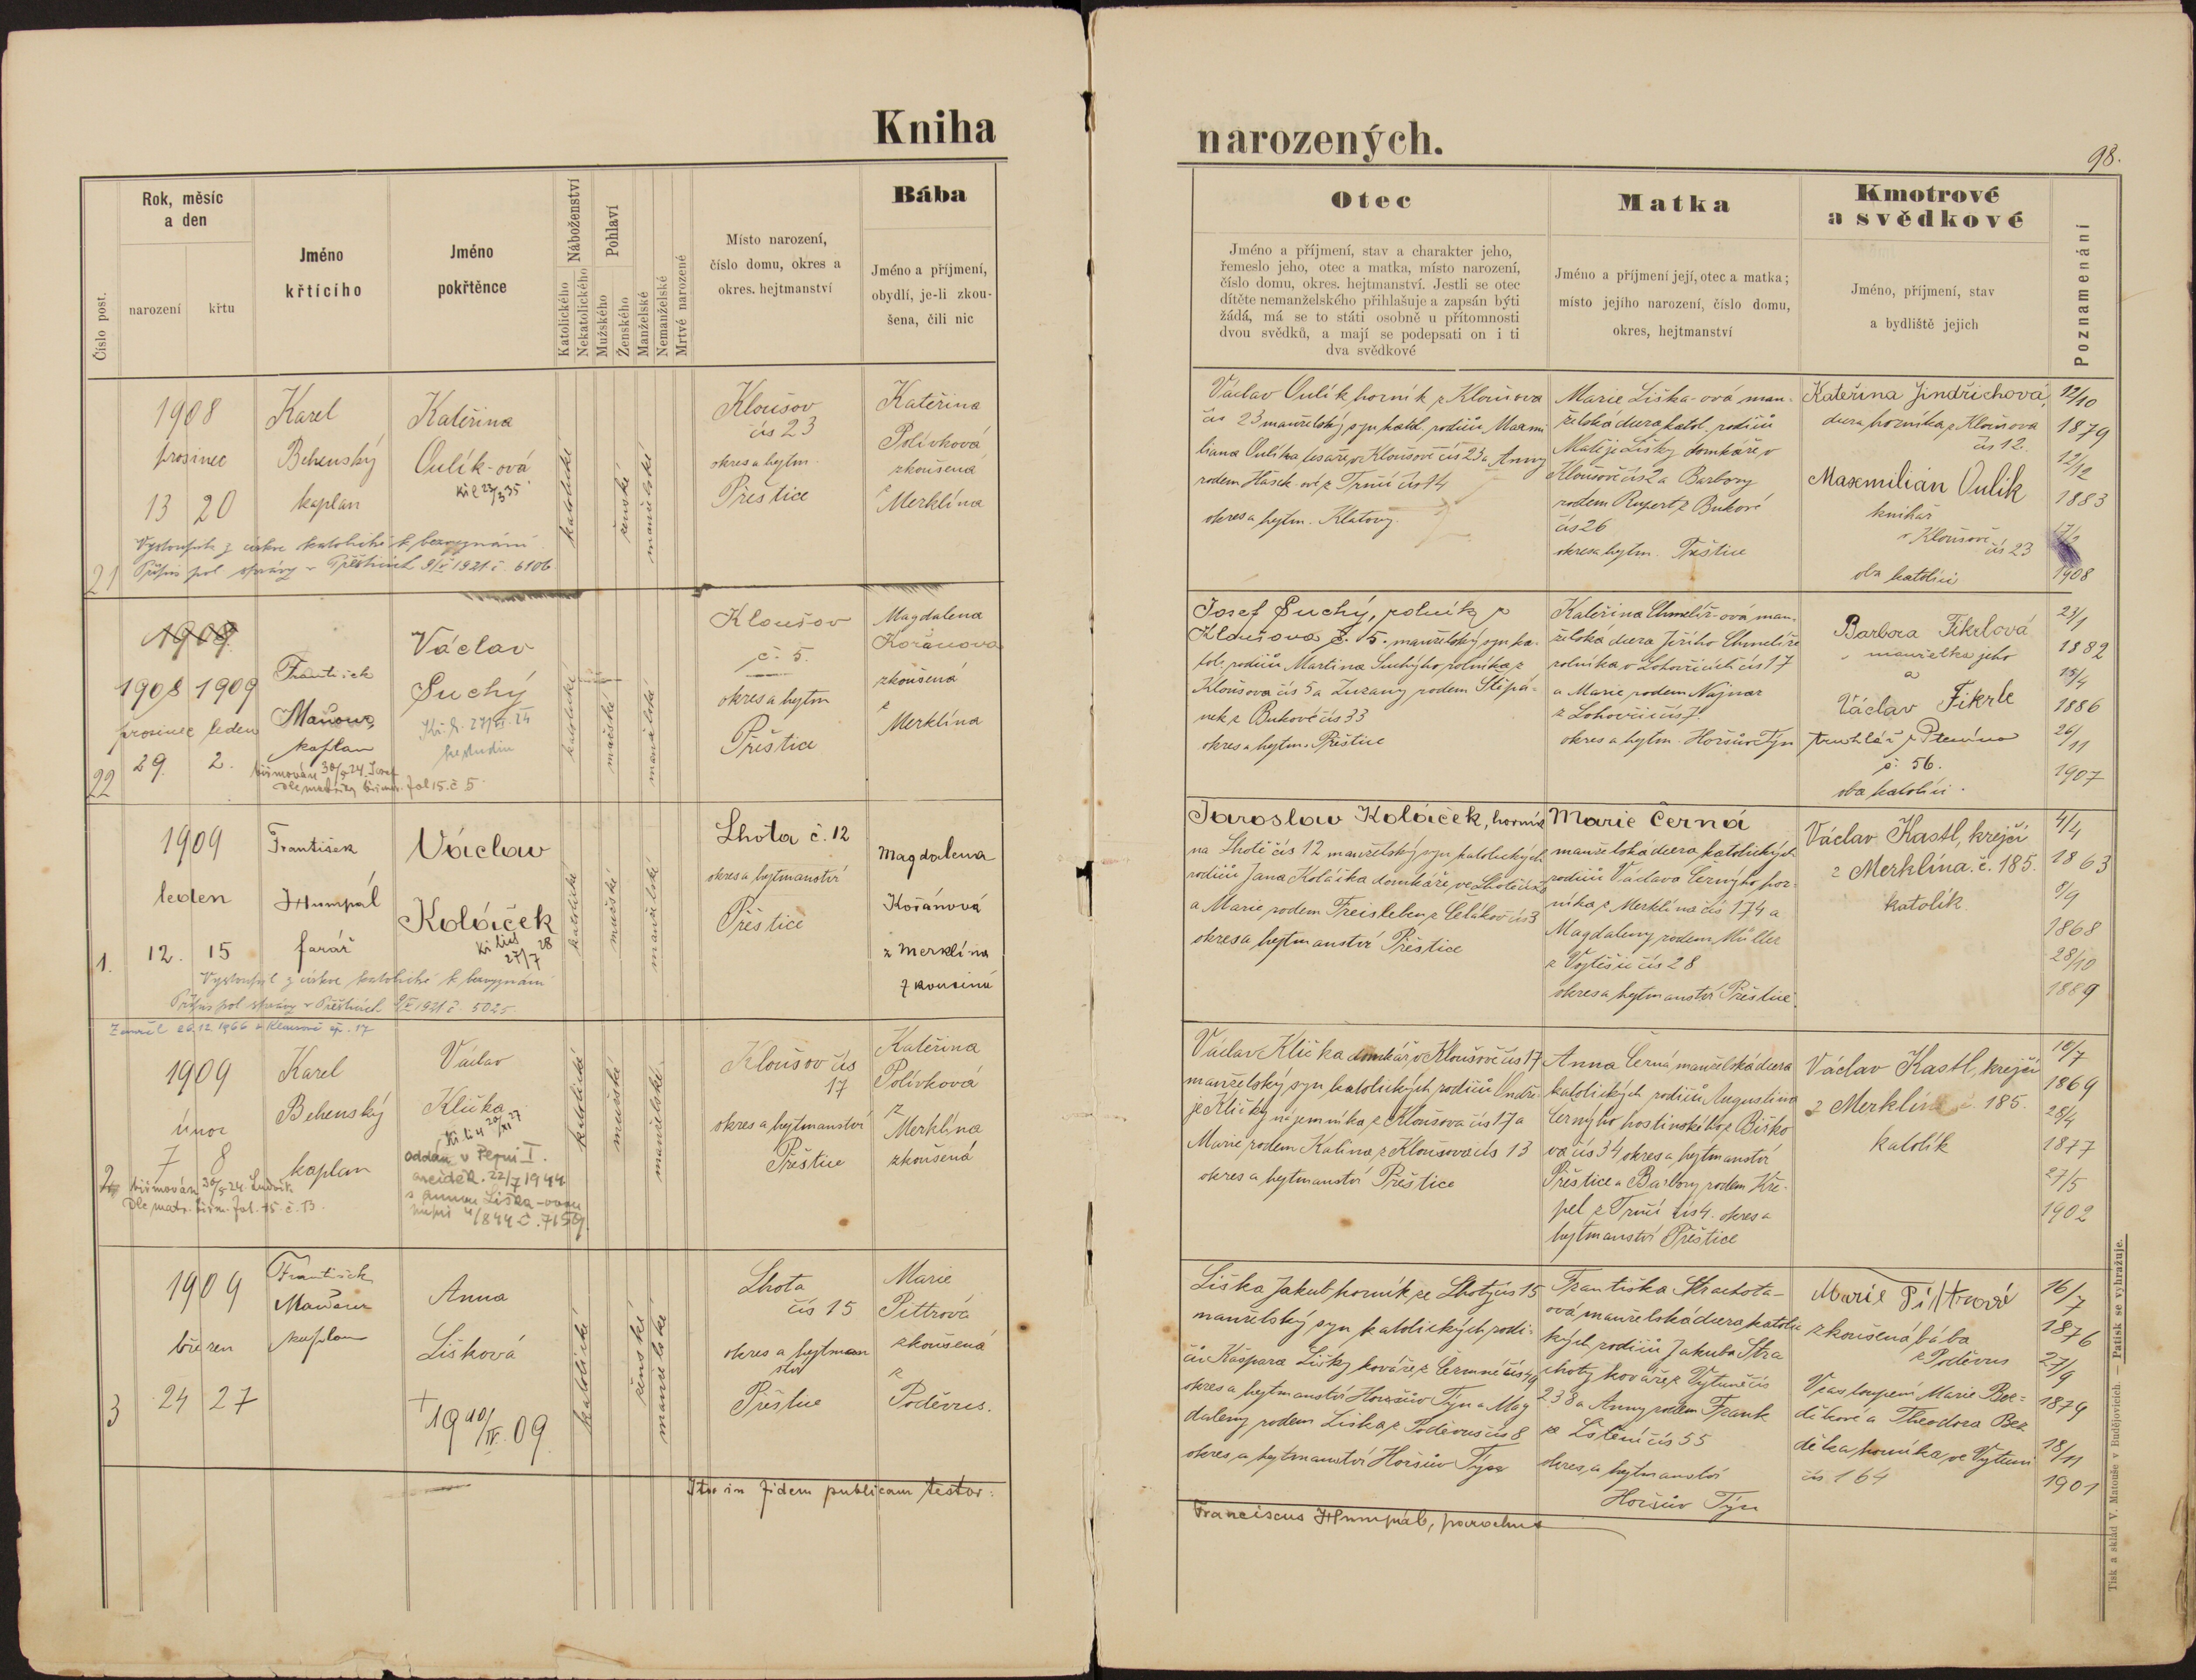 Kniha
Číslo post.
Rok, měsíc
a den
narození
křtu
Jméno
křtícího
Jméno
pokřtěnce
Náboženství
Katolického
Nekatolického
Pohlaví
Mužského
Ženského
Manželské
Nemanželské
Mrtvé narozené
Místo narození,
číslo domu, okres a
okres. hejtmanství
Bába
Jméno a příjmení,
obydlí, je-li zkou-
šena, čili nic
1908
prosinec
13 20
21
Karel
Behenský
kaplan
Kateřina
Oulík-ová
katolické
ženské
manželské
Kloušov
čís 23
okres a hejtm.
Přeštice
Kateřina
Polívková
zkoušená
z
Merklína
Vystoupila z církve katolické k bezvyznání
Přípis pol. správy v Přešticích 1921 č. 6106
1908
1908 1909
prosinec leden
29. 2.
22
František
kaplan
Václav
Suchý
katolické
mužské
manželské
Kloušov
č. 5.
okres a hejtm
Přeštice
Magdalena
Kořánová
zkoušená
z
Merklína
biřmován 30/5 24. Josef
Dle matriky biřmov. fol 15. č 5
1909
leden
12. 15
1.
František
Humpál
farář
Václav
Koláíček
Kř. list
27/7 28
katolické
mužské
manželské
Lhota č. 12
okres a hejtmanství
Přeštice
Magdalena
Kořánová
z Merklína
zkoušená
Vystoupil z církve katolické k bezvyznání
Přípis pol. správy v Přešticích 1921 č. 5025
Zemřel 26.12.1966 v Kloušově čp. 17
1909
únor
7 8
2.
Karel
Behenský
kaplan
Václav
Klička
oddán v Plzni I.
arciděk. 22/7 1944
s Annou Liška-ovou
katolické
mužské
manželské
Kloušov čís
17
okres a hejtmanství
Přeštice
Kateřina
Polívková
z
Merklína
zkoušená
biřmován 30/5 24. Ludvík
Dle matr. biřm. fol. 15. č. 13.
1909
březen
24 27
3
František
kaplan
Anna
Lišková
+
19 10/IV. 09
katolické
ženské
manželské
Lhota
čís 15
okres a hejtman
ství
Přeštice
Marie
Pittrová
zkoušená
z
Poděvus.
Ita in fidem publicam testor:
narozených.
98.
Otec
Jméno a příjmení, stav a charakter jeho,
řemeslo jeho, otec a matka, místo narození,
číslo domu, okres. hejtmanství. Jestli se otec
dítěte nemanželského přihlašuje a zapsán býti
žádá, má se to státi osobně u přítomnosti
dvou svědků, a mají se podepsati on i ti
dva svědkové
Matka
Jméno a příjmení její, otec a matka;
místo jejího narození, číslo domu,
okres, hejtmanství
Kmotrové
a svědkové
Jméno, příjmení, stav
a bydliště jejich
Poznamenání
Václav Oulík horník z Kloušova
čís 23 manželský syn katol. rodičů Maxmi
liana Oulíka tesaře, v Kloušově čís 23 a Anny
rodem Hašek-ové z Trnčí čís 14
okres a hejtm. Klatovy.
Marie Liška-ová man-
želská dcera katol. rodičů
Matěje Lišky domkáře, v
Kloušově čís 2 a Barbory
rodem Rupert z Bukové
čís 26
okres a hejtm. Přeštice
Kateřina Jindřichová,
dcera horníka z Kloušova
čís 12.
Maxmilián Oulík
knihař
v Kloušově
čís 23
oba katolíci
12/10
1879
12/12
1883
1908
Josef Suchý, rolník z
Kloušova č. 5. manželský syn ka-
tol. rodičů Martina Suchýho, rolníka z
Kloušova čís 5 a Zuzany rodem Štěpá-
nek z Bukové čís 33
okres a hejtm. Přeštice
Kateřina Chmelíř-ová man-
želská dcera Jiřího Chmelíře
rolníka v Lohovčicích čís 17
a Marie rodem Najmar
z Lohovčic čís 7.
okres a hejtm. Horšův Týn
Barbora Fikrlová
manželka jeho
a
Václav Fikrle
truhlář z Ptenína
č. 56.
oba katolíci.
23/1
1882
15/4
1886
26/11
1907
Jaroslav Koláíček, horník
na Lhotě čís 12 manželský syn katolických
rodičů Jana Koláčka domkáře, ve Lhotě čís 5
a Marie rodem Freisleben z Čelákov čís 3
okres a hejtmanství Přeštice
Marie Černá
manželská dcera katolických
rodičů Václava Černýho hor-
níka z Merklína čís 174 a
Magdaleny rodem Müller
z Vojtěšic čís 28
okres a hejtmanství Přeštice.
Václav Kastl, krejčí
z Merklína. č. 185.
katolík.
4/4
1863
8/9
1868
28/10
1889
Václav Klička domkář, v Kloušově čís 17
manželský syn katolických rodičů Ondře-
je Kličky nájemníka z Kloušova čís 17 a
Marie rodem Kalina z Kloušova čís 13
okres a hejtmanství Přeštice
Anna Černá, manželská dcera
katolických rodičů Augustina
Černýho hostinského z Biřko
va čís 34 okres a hejtmanství
Přeštice a Barbory rodem Kře-
pel z Trnčí čís 4. okres a
hejtmanství Přeštice
Václav Kastl, krejčí
z Merklína č. 185.
katolík
10/7
1869
28/4
1877
27/5
1902
Liška Jakub horník ze Lhoty čís 15
manželský syn katolických rodi-
čů Kašpara Lišky kováře, z Čermné čís 49
okres a hejtmanství Horšův Týn a Mag
daleny rodem Liška z Poděvus čís 8
okres, a hejtmanství Horšův Týn
Františka Strachota-
ová manželská dcera katolic
kých rodičů Jakuba Stra
choty kováře, z Vytuně čís
238 a Anny rodem Frank
ze Lštění čís 55
okres, a hejtmanství
Horšův Týn
Marie Pittrová
zkoušená bába
z Poděvus
V zastoupení Marie Bez-
děkové a Theodora Bez
děka, horníka, ve Vytuni
čís. 164
16/7
1876
27/9
1879
18/11
1901
Franciscus Humpál, parochus
Tisk a sklad V. Matouše v Budějovicích. — Patisk se vyhražuje.